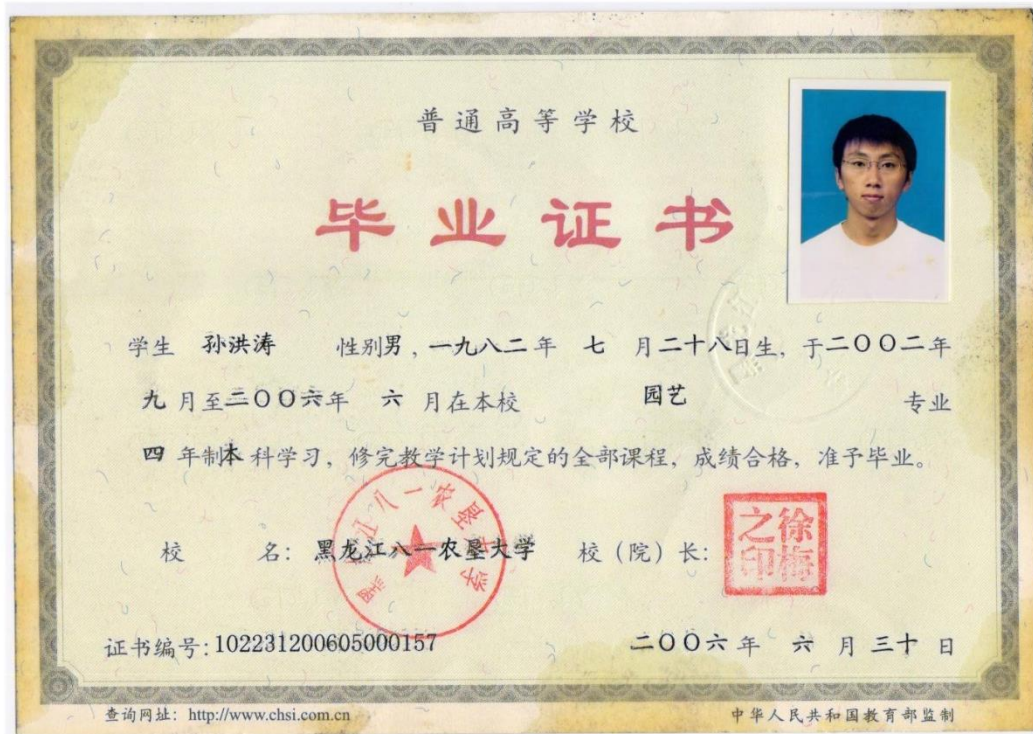 普通高等学校
毕业证书
学生 孙洪涛 性别男，一九八二年 七 月二十八日生，于二〇〇二年
九 月至二〇〇六年 六 月在本校 园艺 专业
四 年制本 科学习，修完教学计划规定的全部课程，成绩合格，准予毕业。
校 名：黑龙江八一农垦大学 校（院）长：
黑龙江八一农垦大学
徐梅之印
证书编号:102231200605000157 二〇〇六年 六 月 三十 日
查询网址：http://www.chsi.com.cn 中华人民共和国教育部监制